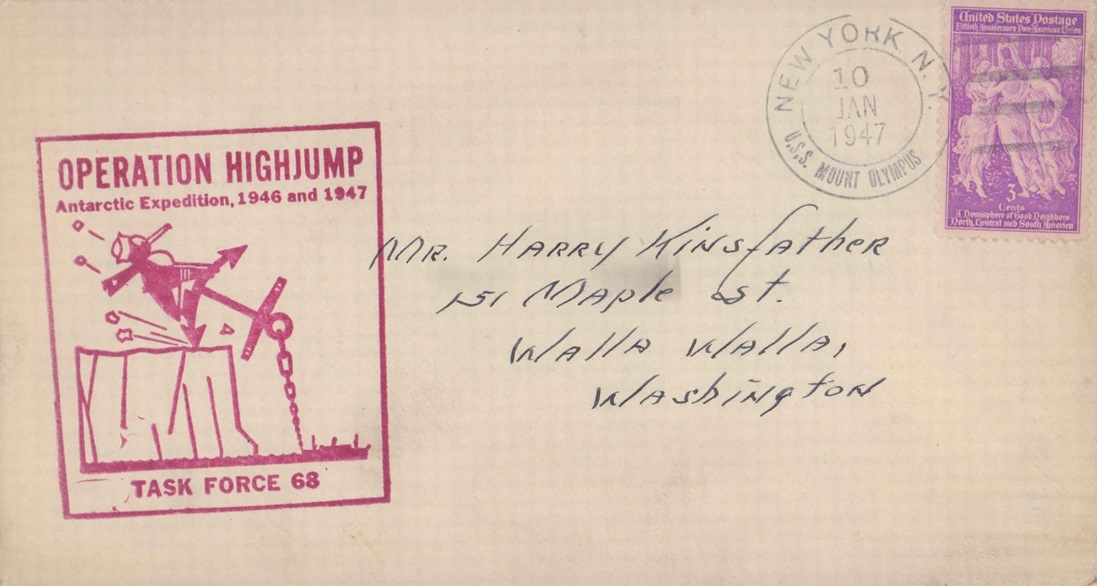 United States Postage
Fiftieth Anniversary Pan-American Union
3
Cents
A Hemisphere of Good Neighbors
North, Central and South America
NEW YORK N.Y.
10
JAN
1947
U.S.S. MOUNT OLYMPUS
OPERATION HIGHJUMP
Antarctic Expedition, 1946 and 1947
TASK FORCE 68
Mr. Harry Kinsfather
151 Maple St.
Walla Walla,
Washington